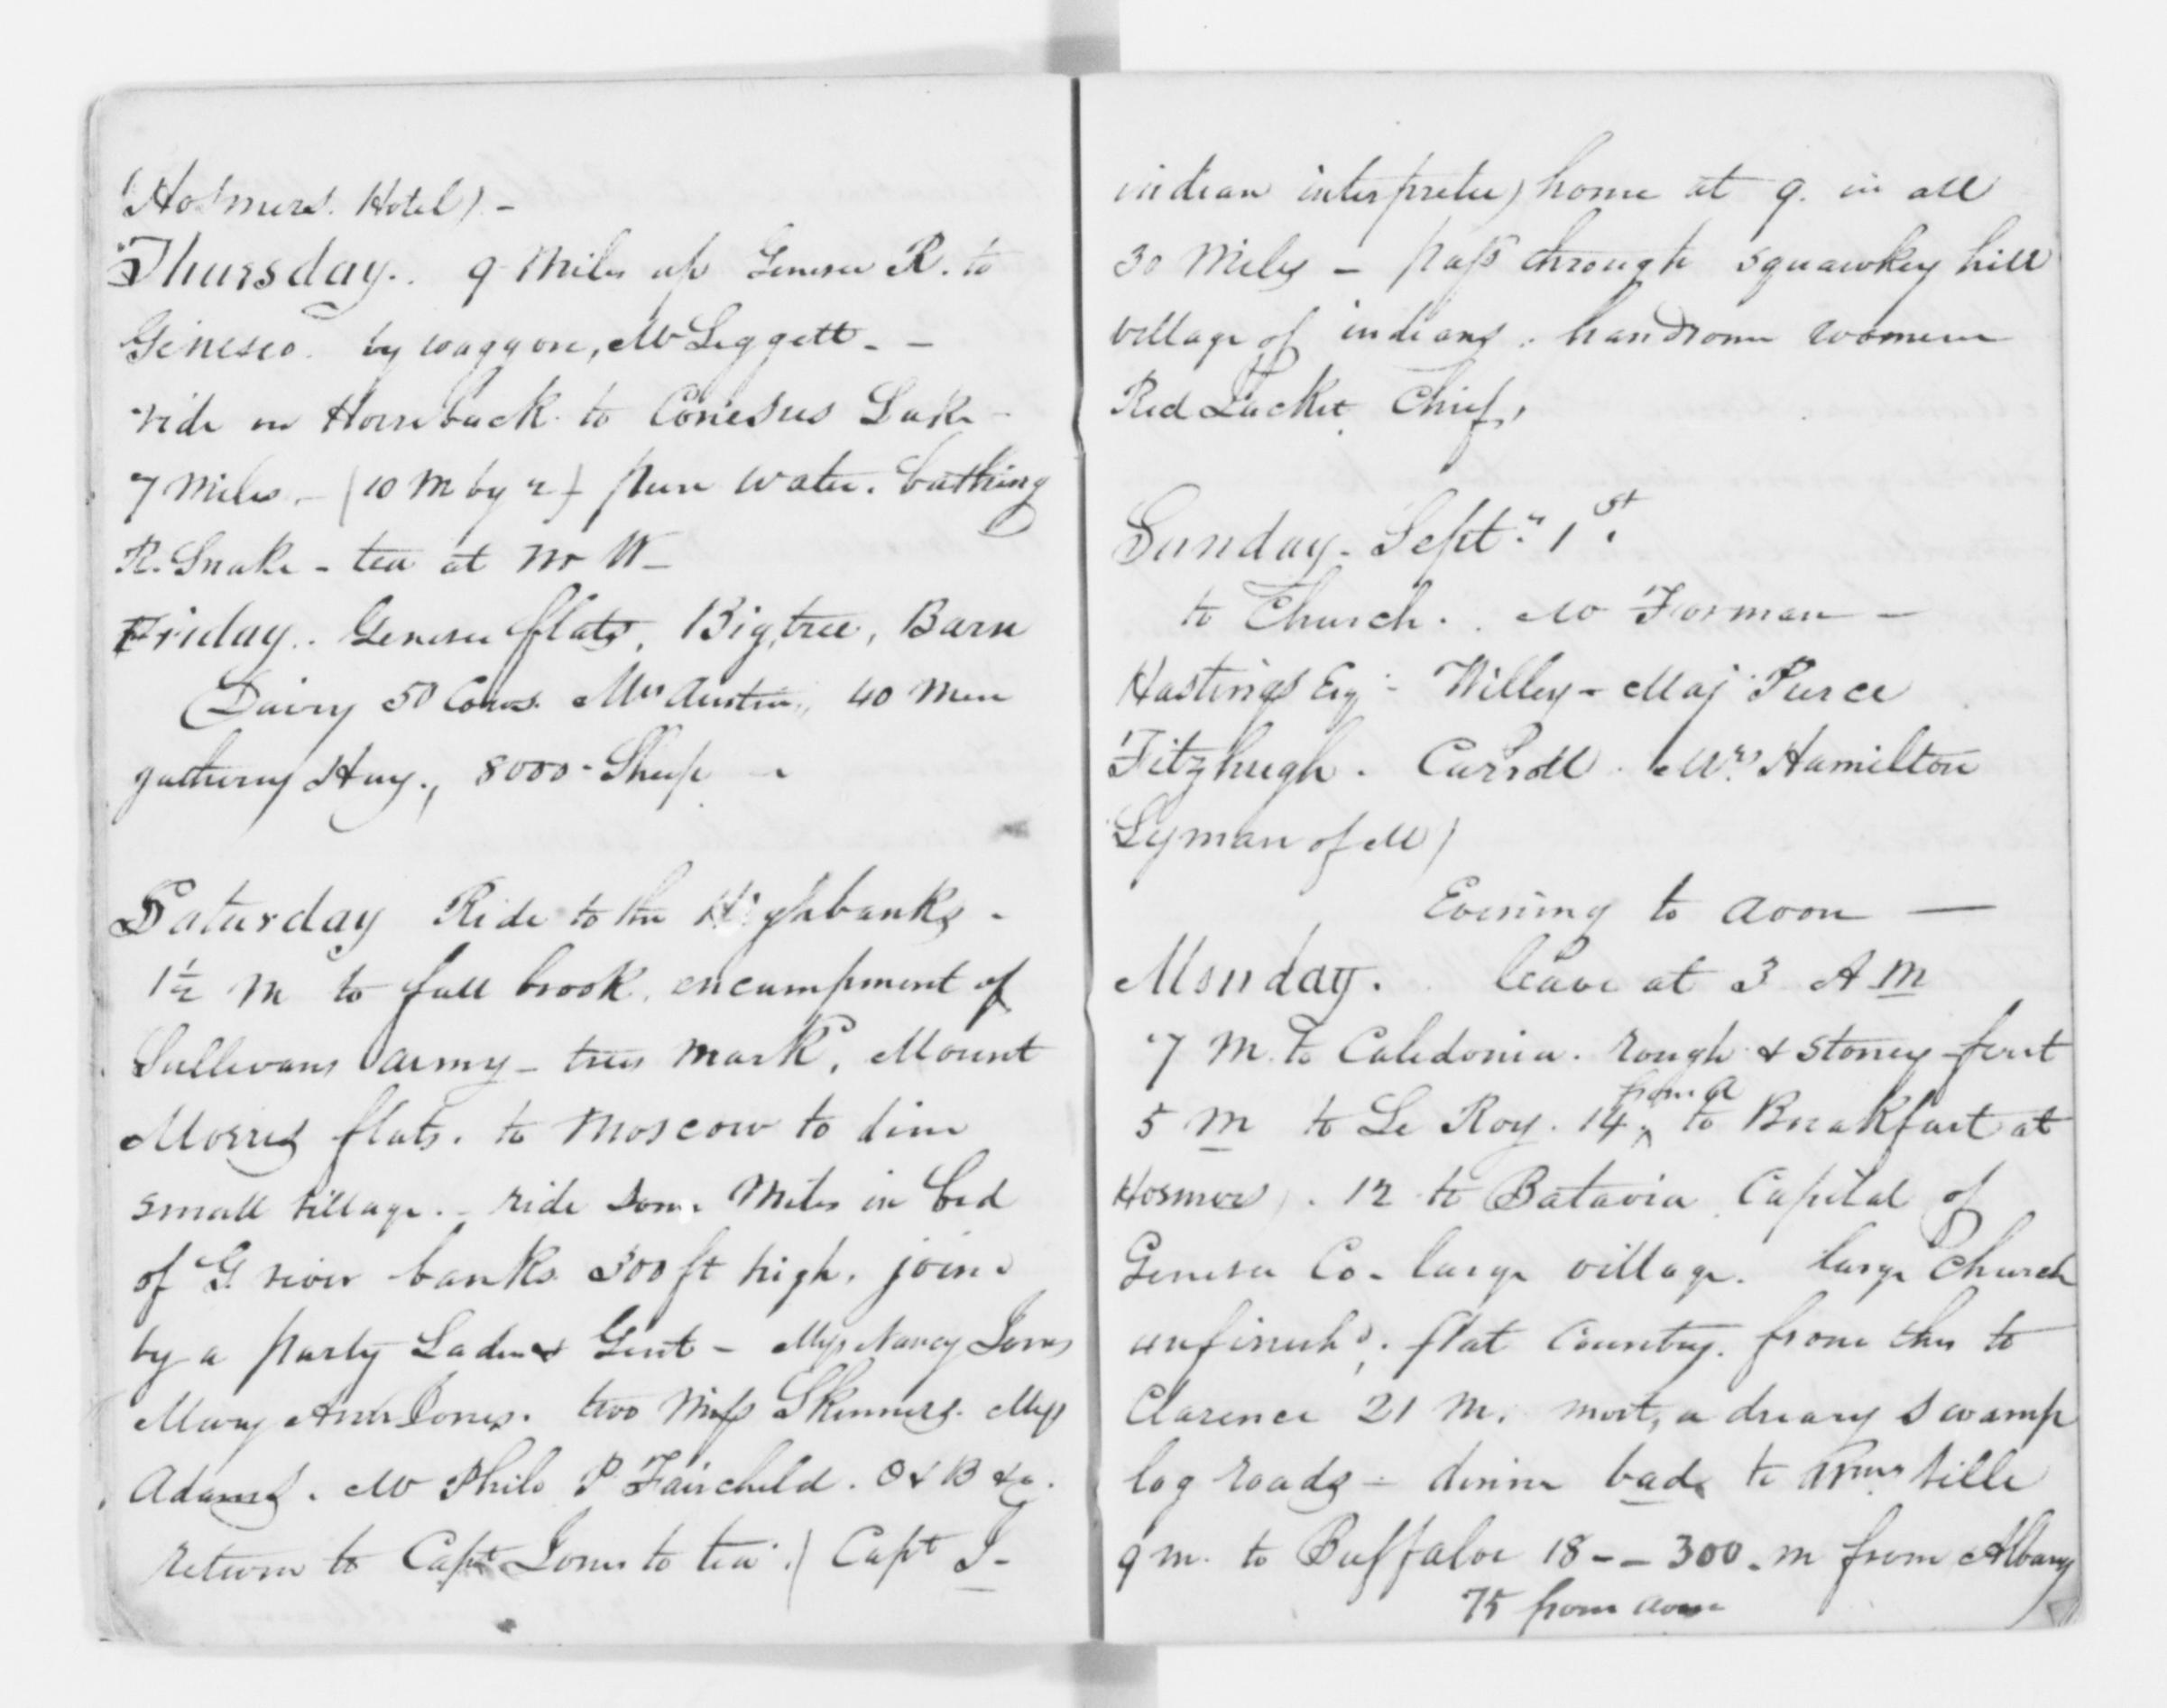 (Hosmers. Hotel) -
Thursday.. 9 Miles up Genesee R. to
Geneseo. by waggon, Mr Leggett - -
ride on Horseback to Conesus Lake -
7 Miles. - (10 M by 2) pure water. bathing
R. Snake - tea at Mr W -
Friday.. Genesee flats, Big tree, Barn
Dairy 50 Cows. Mrs Austin, 40 Men
gathering Hay., 8000 - Sheep -
Saturday Ride to the Highbanks -
1½ M to fall brook, encampment of
Sullivans army - trees mark'd, Mount
Morris flats. to Moscow to dine
small village. - ride some Miles in bed
of G river banks 300 ft high. joind
by a party Ladies & Gent - Miss Nancy Jones
Mary Ann Jones. two Miss Skinners. Miss
Adams. Mr Philo P Fairchild. O & B &c.
return to Capt Jones to tea .) Capt J -
indian interpreter) home at 9. in all
30 Miles - pass through squawkey hill
village of indians. handsome women
Red Jacket Chief,
Sunday - Sept. 1st.
to Church. . Mr Forman -
Hastings Esq - Willey - Maj Pierce
Fitzhugh. Carroll. Mrs Hamilton
Lyman of M)
Evening to avon —
Monday. leave at 3 A M
7 M. to Caledonia. rough & stoney -
5 M to Le Roy. 14 from A to Breakfast at
Hosmers). 12 to Batavia Capital of
Genesee Co - large village. large Church
unfinishd,. flat Country. from this to
Clarence 21 M. most, a dreary swamp
log roads - dinner bad, to ville
9 m. to Buffaloe 18 - - 300 - m from Albany
75 from avon